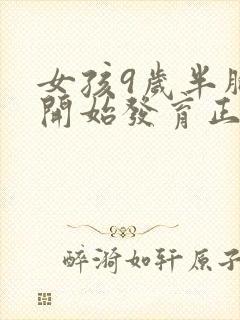 女孩9歲半胸
開始發育正
醉漪如轩原子